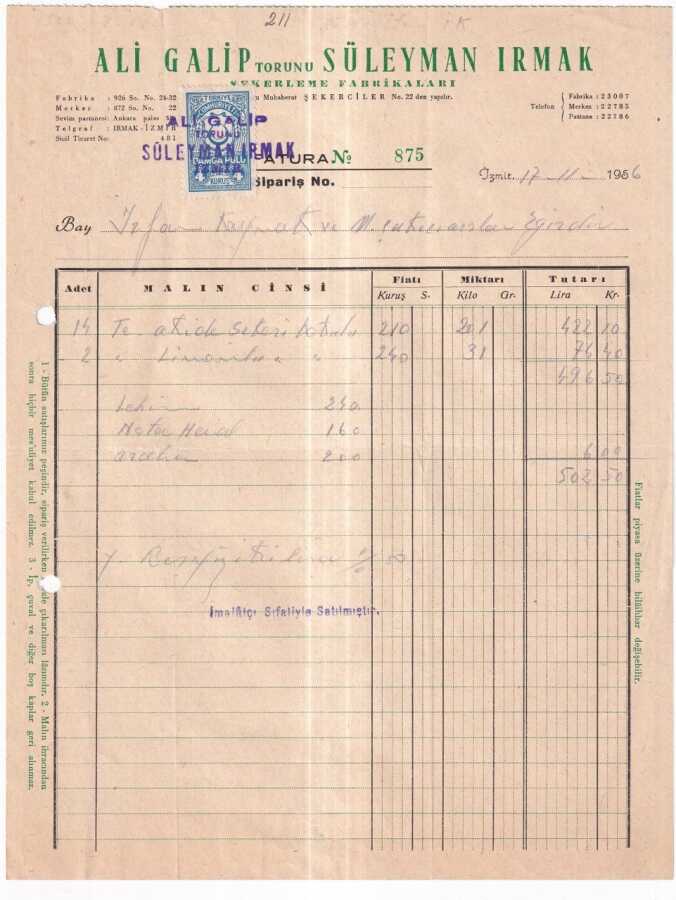 211
ALİ GALİP TORUNU SÜLEYMAN IRMAK
ŞEKERLEME FABRİKALARI
Muhaberat ŞEKERCİLER No. 22 den yapılır.
Fabrika : 926 So. No. 24-32
Merkez : 872 So. No. 22
Sevim pastanesi: Ankara palas
Telgraf : IRMAK - İZMİR
Sicil Ticaret No: 481
Telefon
Fabrika : 23007
Merkez : 22785
Pastane : 22786
TÜRKİYE CUMHURİYETİ
DAMGA PULU
4 KURUŞ 4
ALİ GALİP
TORUNU
SÜLEYMAN IRMAK
İZMİR
FATURA No 875
Sipariş No.
İzmir, 17-11-1956
Bay İrfan ve M. Eğirdir
Adet MALIN CİNSİ Fiatı Miktarı Tutarı
Kuruş S. Kilo Gr. Lira Kr.
14 Te akide şekeri kutulu 210 201 422 10
2 " Limonlu " " 240 31 74 40
496 50
Lehim 240
160
araba 200 6 00
502 50
İmalâtçı Sıfatiyle Satılmıştır.
1 - Bütün satışlarımız peşindir, sipariş verilirken çıkarılması lâzımdır. 2 - Malın ihracından
sonra hiçbir mes'uliyet kabul edilmez. 3 - İp, çuval ve diğer boş kaplar geri alınmaz.
Fiatlar piyasa üzerine bilâihbar değişebilir.